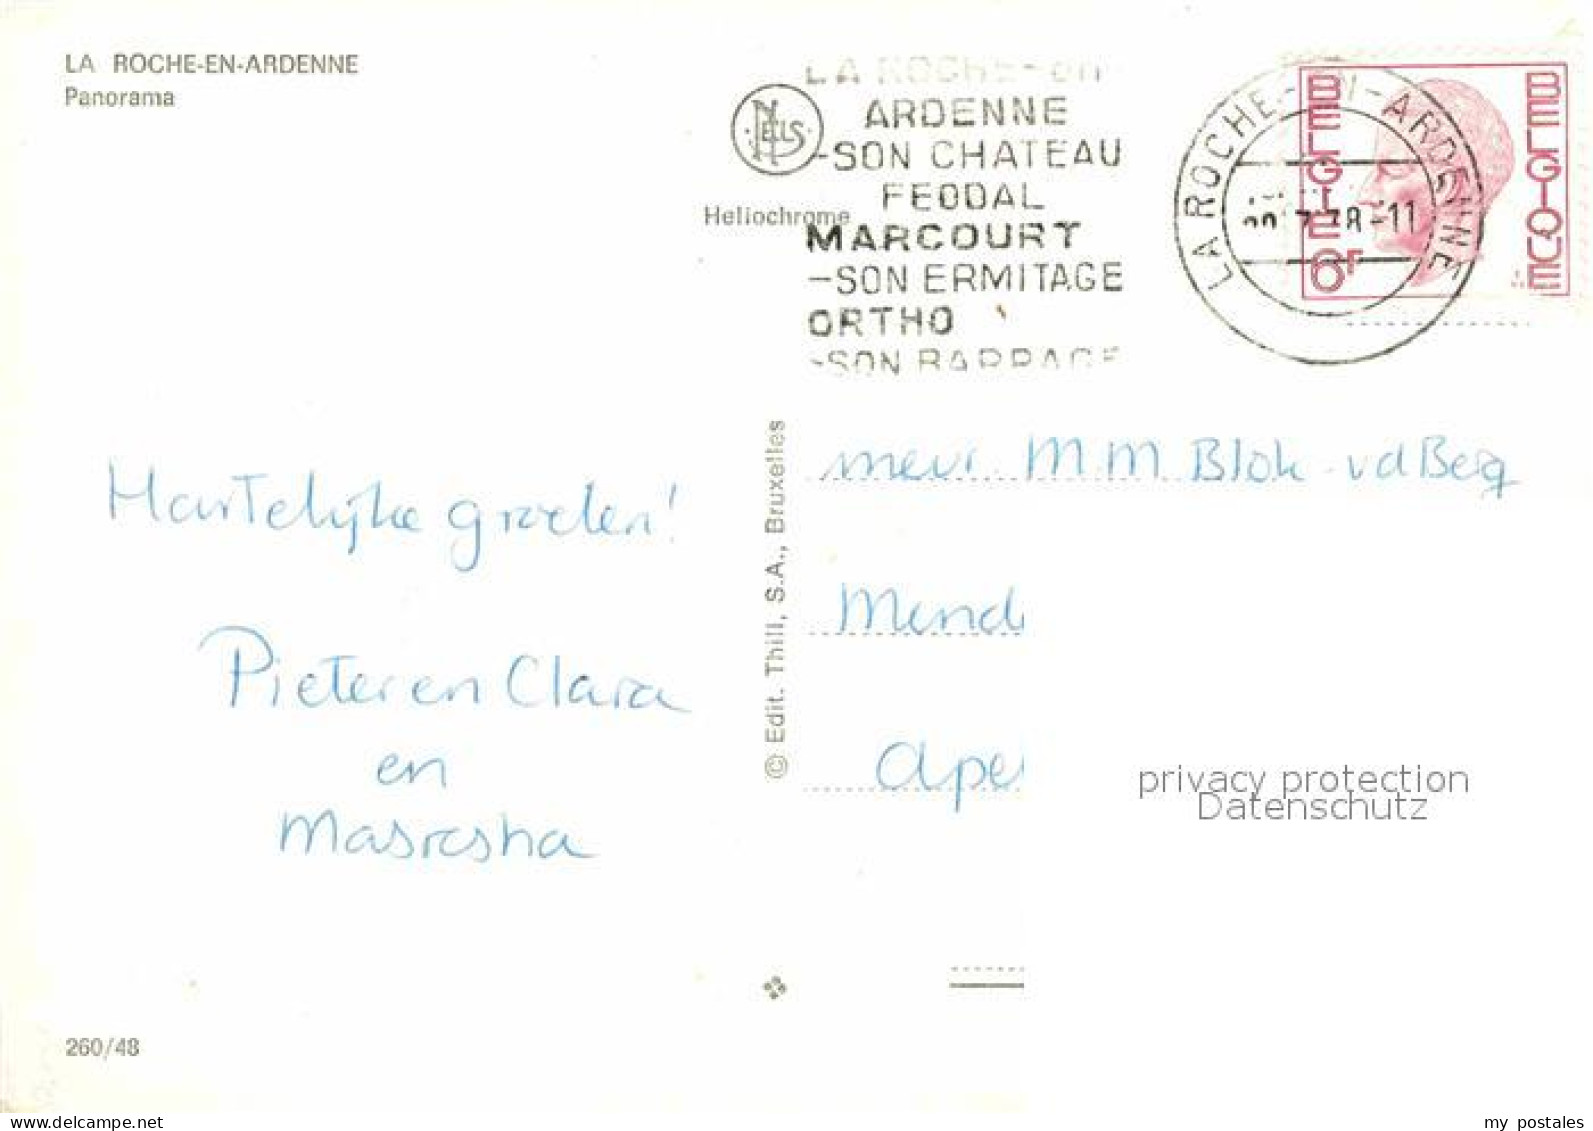 LA ROCHE-EN-ARDENNE
Panorama
NELLS
Heliochrome
LA ROCHE-en
ARDENNE
-SON CHATEAU
FEODAL
MARCOURT
-SON ERMITAGE
ORTHO
-SON BARRAGE
LA ROCHE-EN-ARDENNE
78-11
BELGIE
BELGIQUE
6F
Hartelijke groeten!
Pieter en Clara
en
Masresha
© Edit. Thill, S.A., Bruxelles
mevr. M M Blok - vd Berg
privacy protection
Datenschutz
260/48
www.delcampe.net
my postales